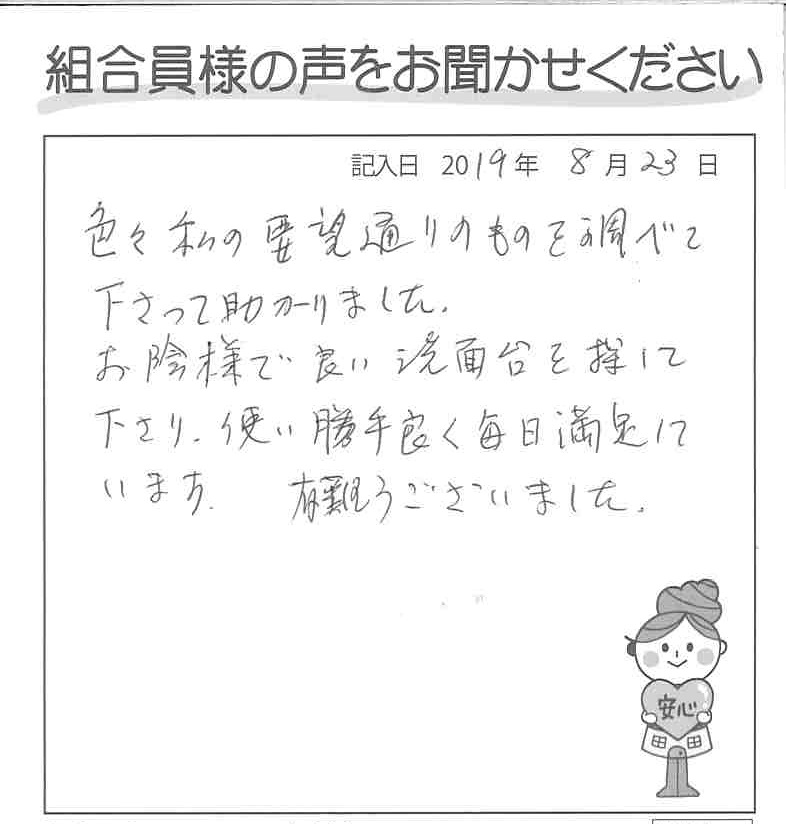 組合員様の声をお聞かせください
記入日 2019年 8月23日
色々私の要望通りのものを調べて
下さって助かりました.
お陰様で良い洗面台を探して
下さり.使い勝手良く毎日満足して
います. 有難うございました.
安心